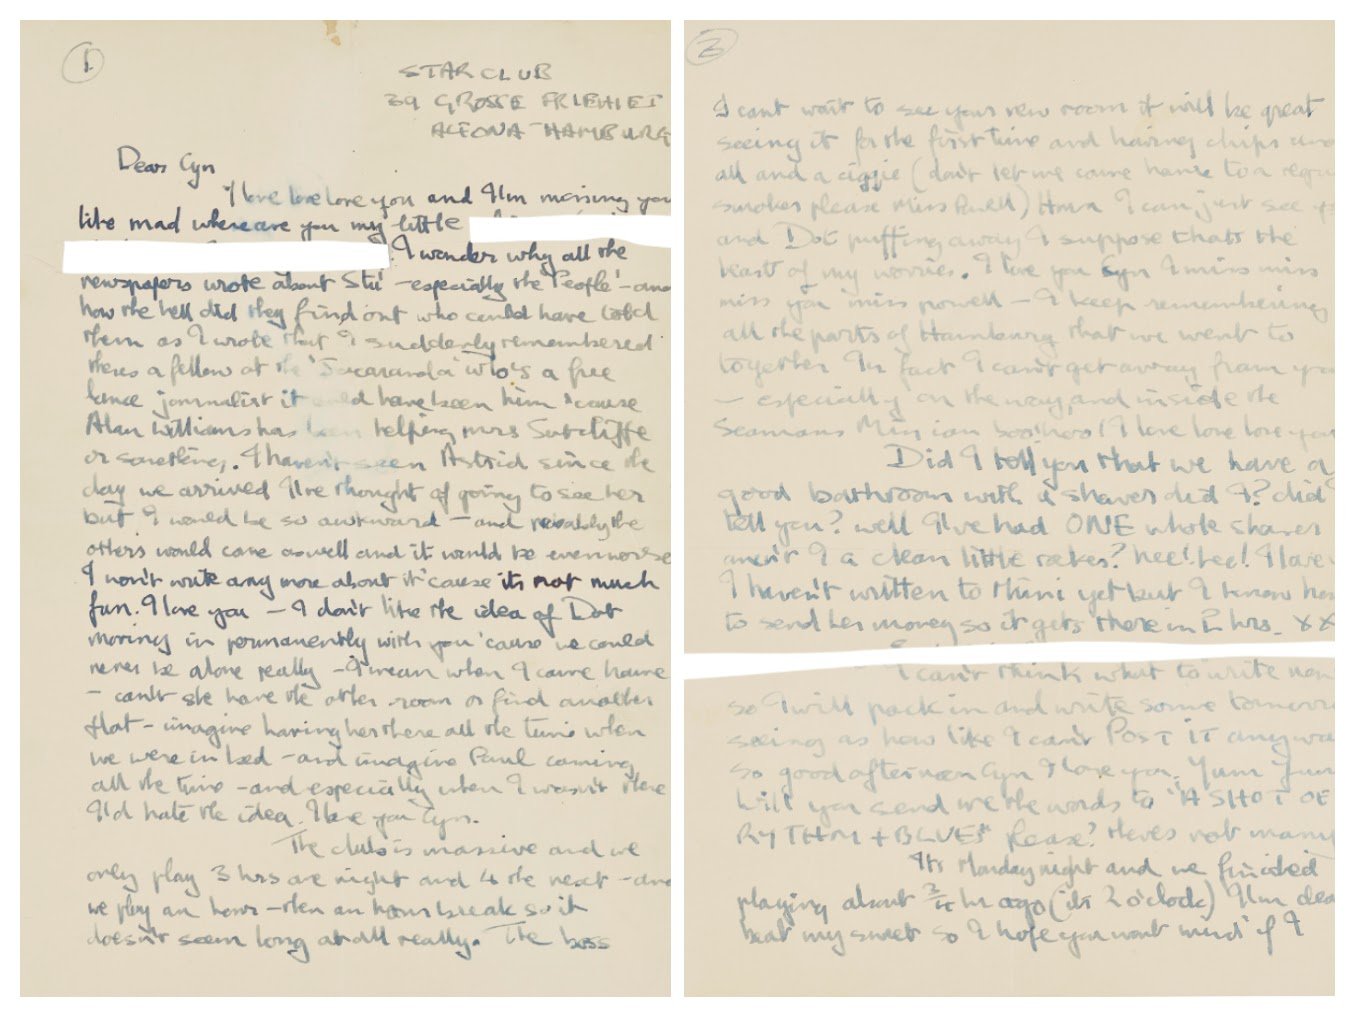 1.
STAR CLUB
39 GROSSE FRIEHIET
ALTONA HAMBURG
Dear Cyn
I love love love you and I'm missing you
like mad where are you my little
I wonder why all the
newspapers wrote about Stu - especially the 'People' - and
how the hell did they find out who could have told
them as I wrote that I suddenly remembered
theres a fellow at the 'Jacaranda' who's a free
lance journalist it could have been him 'cause
Alan Williams has been helping mrs Sutcliffe
or something. I haven't seen Astrid since the
day we arrived I've thought of going to see her
but I would be so awkward - and probably the
others would come aswell and it would be even worse
I won't write any more about it 'cause its not much
fun. I love you - I don't like the idea of Dot
moving in permanently with you 'cause we could
never be alone really - I mean when I come home
- can't she have the other room or find another
flat - imagine having her there all the time when
we were in bed - and imagine Paul coming
all the time - and especially when I wasn't there
I'd hate the idea. I love you Cyn.
The club is massive and we
only play 3 hrs one night and 4 the next - and
we play an hour - then an hours break so it
doesn't seem long at all really. The boss
3
I cant wait to see your new room it will be great
seeing it for the first time and having chips and
all and a ciggie (don't let me come home to a regu
smoker please Miss Powell) Hmm I can just see y
and Dot puffing away I suppose thats the
least of my worries. I love you Cyn I miss miss
miss you miss powell - I keep remembering
all the parts of Hamburg that we went to
together In fact I can't get away from you
- especially on the way, and inside the
Seamans Mission boo hoo! I love love love you
Did I tell you that we have a
good bathroom with a shower did I? did
tell you? well I've had ONE whole shower
aren't I a clean little raker? hee! hee! I love
I haven't written to Mimi yet but I know how
to send her money so it gets there in 2 hrs. XX
I can't think what to write now
so I will pack in and write some tomorrow
seeing as how like I can't POST IT anyway
so good afternoon Cyn I love you. Yum Yum
Will you send me the words to "A SHOT OF
RYTHM + BLUES" Please? theres not many
Its Monday night and we finished
playing about 3/4 hr ago (its 2 o'clock) I'm dead
beat my sweet so I hope you wont mind if I